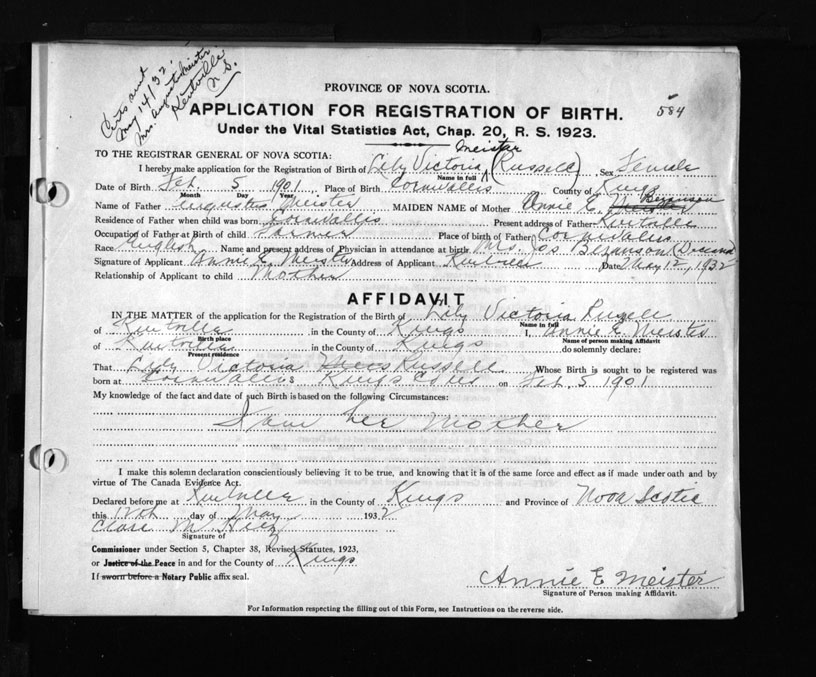 Certs sent
May 14/32
Mrs. August Meister
Kentville
N.S.
PROVINCE OF NOVA SCOTIA.
APPLICATION FOR REGISTRATION OF BIRTH.
584
Under the Vital Statistics Act, Chap. 20, R. S. 1923.
TO THE REGISTRAR GENERAL OF NOVA SCOTIA:
Meister
I hereby make application for the Registration of Birth of Lily Victoria (Russell) Sex Female
Name in full
Date of Birth Feb. 5 1901 Place of Birth Cornwallis County of Kings
Month Day Year
Name of Father Augustus Meister MAIDEN NAME of Mother Annie E. Benanson
Residence of Father when child was born Cornwallis Present address of Father Kentville
Occupation of Father at Birth of child Farmer Place of birth of Father Cornwallis
Race English Name and present address of Physician in attendance at birth Mrs. Jos Benanson
Signature of Applicant Annie E. Meister Address of Applicant Kentville Date May 12, 1932
Relationship of Applicant to child Mother
AFFIDAVIT
IN THE MATTER of the application for the Registration of the Birth of Lily Victoria Russell
Name in full
of Kentville in the County of Kings I, Annie E Meister
Birth place Name of person making Affidavit
of Kentville in the County of Kings do solemnly declare:
Present residence
That Lily Victoria Russell Whose Birth is sought to be registered was
born at Cornwallis Kings on Feb. 5 1901
My knowledge of the fact and date of such Birth is based on the following Circumstances:
I am her mother
I make this solemn declaration conscientiously believing it to be true, and knowing that it is of the same force and effect as if made under oath and by
virtue of The Canada Evidence Act.
Declared before me at Kentville in the County of Kings and Province of Nova Scotia
this 12th day of May 1932
Signature of
Commissioner under Section 5, Chapter 38, Revised Statutes, 1923,
or Justice of the Peace in and for the County of Kings
If sworn before a Notary Public affix seal.
Annie E Meister
Signature of Person making Affidavit.
For Information respecting the filling out of this Form, see Instructions on the reverse side.